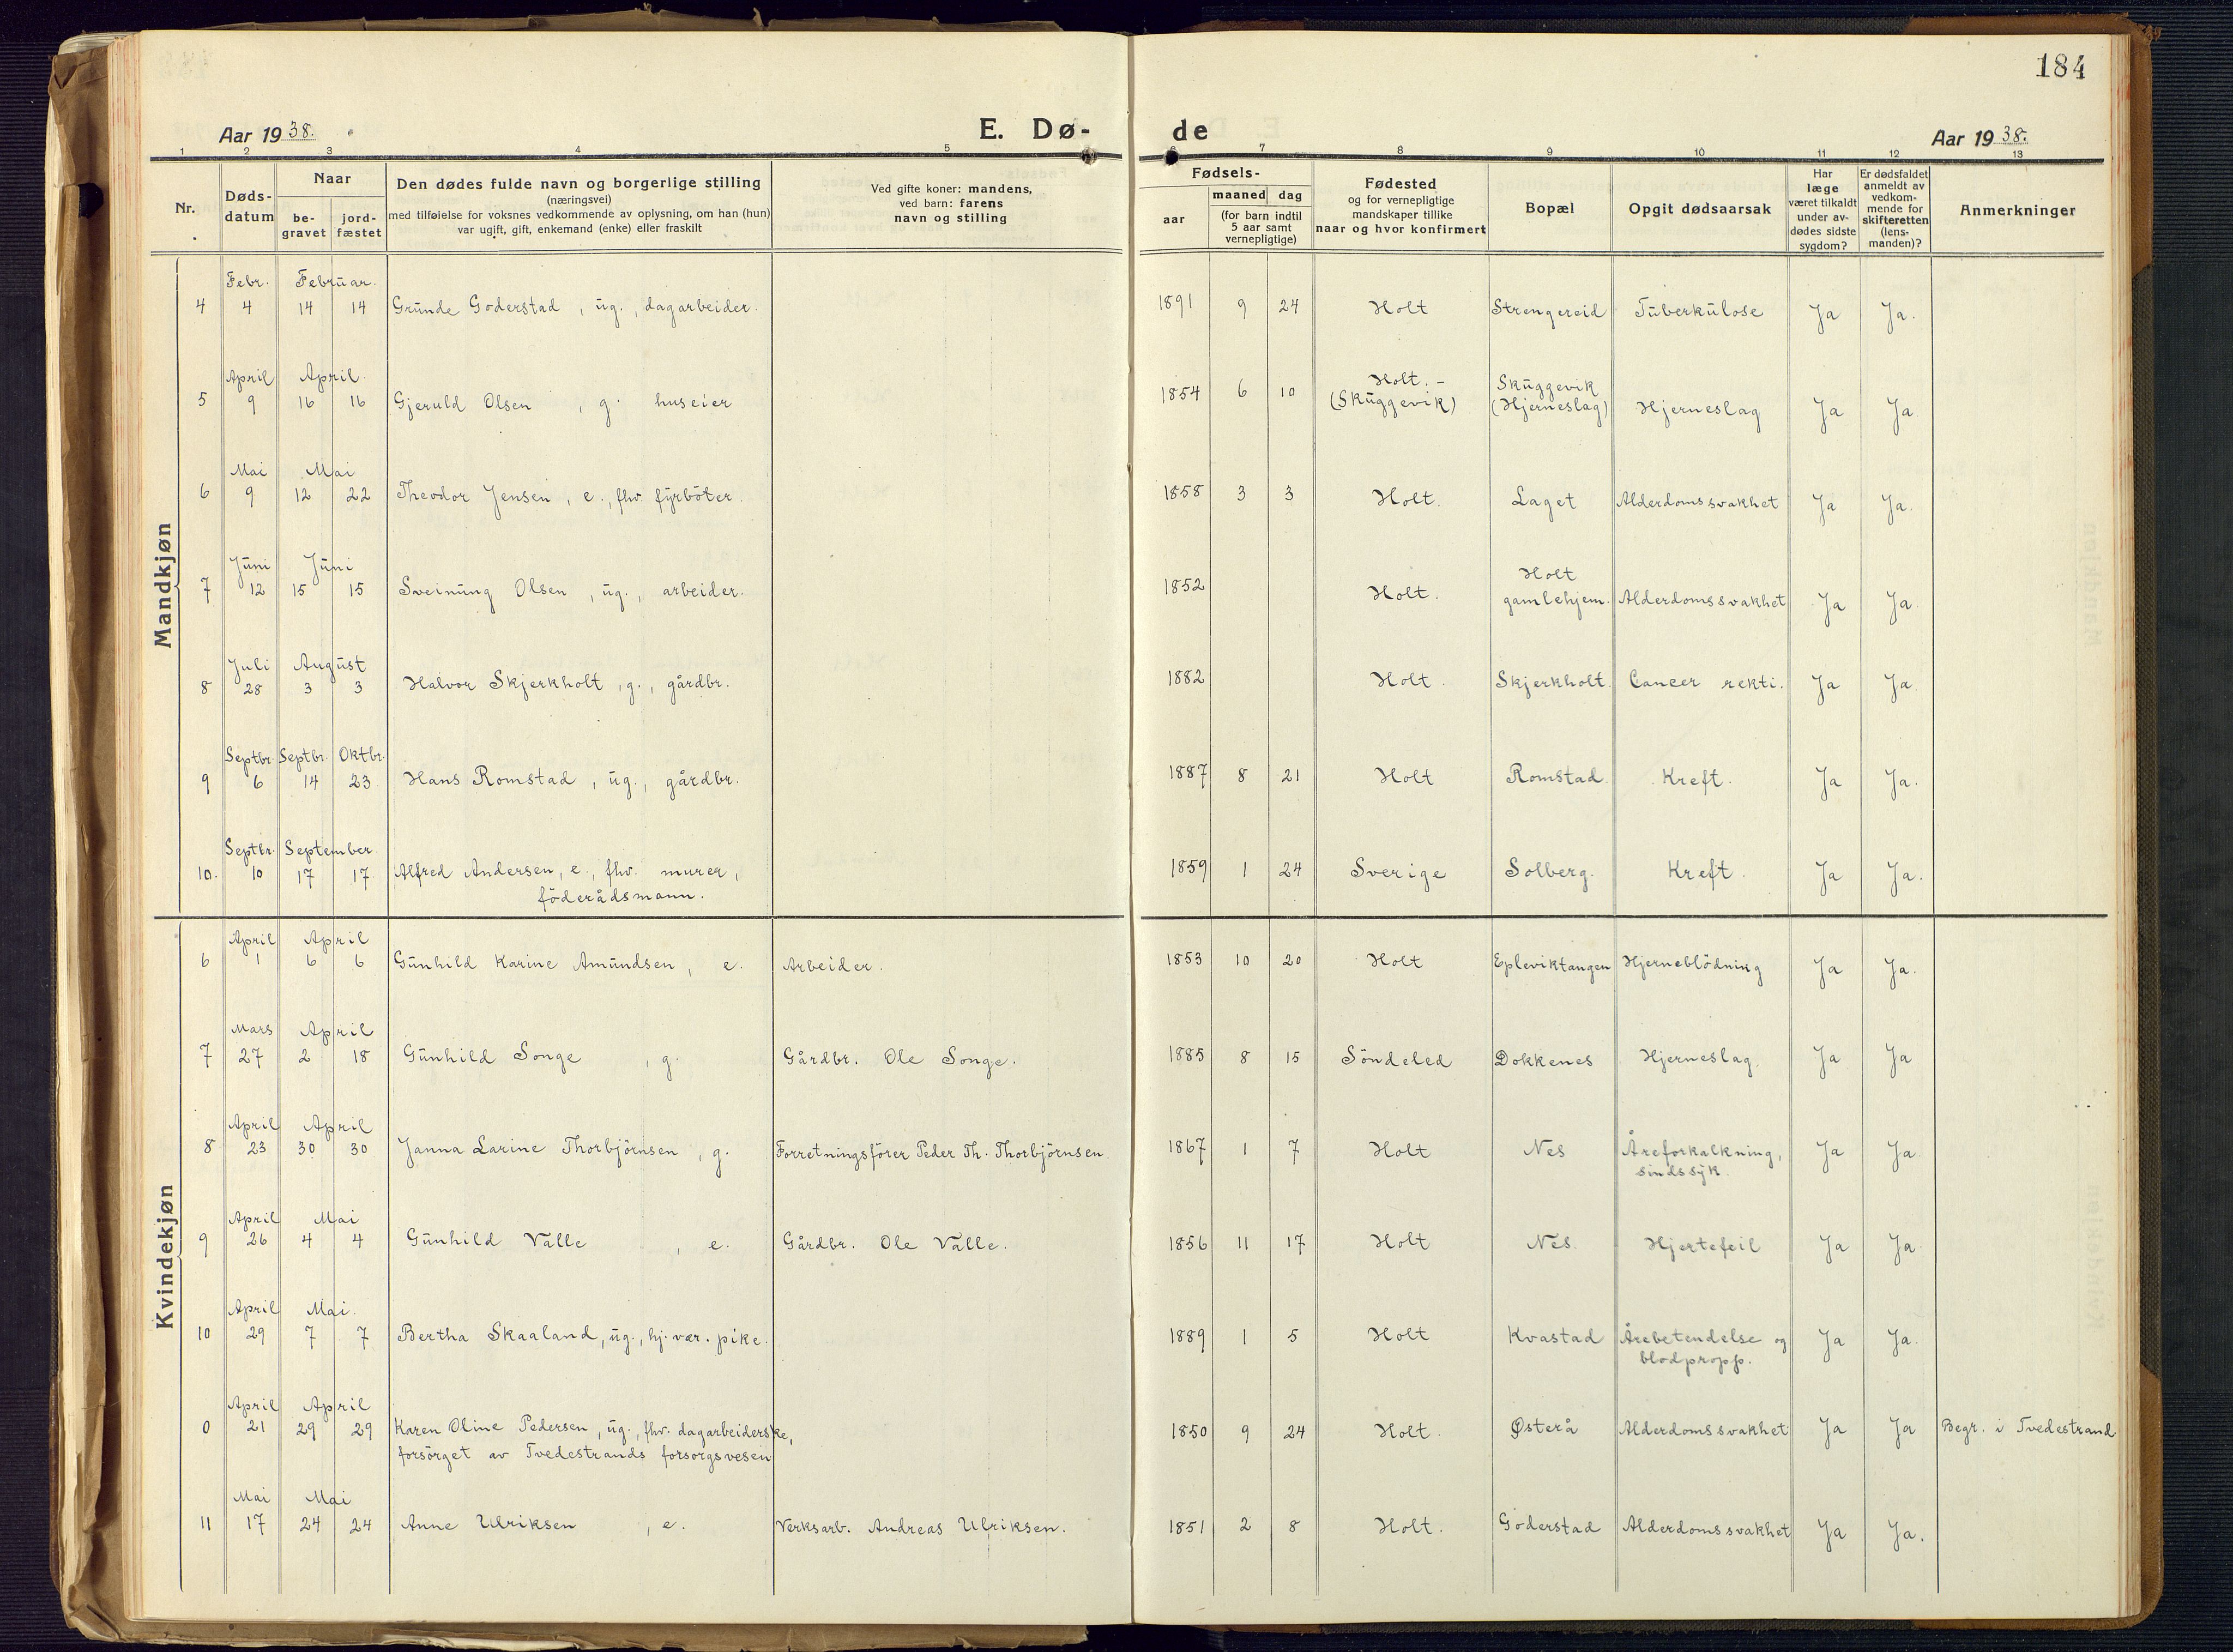 184
Aar 1938. E. Dø- de Aar 1938.
1 2 3 4 5 6 7 8 9 10 11 12 13
Nr.
Døds-
datum
Naar
be-
gravet
jord-
fæstet
Den dødes fulde navn og borgerlige stilling
(næringsvei)
med tilføielse for voksnes vedkommende av oplysning, om han (hun)
var ugift, gift, enkemand (enke) eller fraskilt
Ved gifte koner: mandens,
ved barn: farens
navn og stilling
Fødsels-
aar
maaned dag
(for barn indtil
5 aar samt
vernepligtige)
Fødested
og for vernepligtige
mandskaper tillike
naar og hvor konfirmert
Bopæl
Opgit dødsaarsak
Har
læge
været tilkaldt
under av-
dødes sidste
sygdom?
Er dødsfaldet
anmeldt av
vedkom-
mende for
skifteretten
(lens-
manden)?
Anmerkninger
Mandkjøn
Febr. Februar.
4 4 14 14 Grunde Goderstad, ug., dagarbeider. 1891 9 24 Holt Strengereid Tuberkulose Ja Ja.
April April
5 9 16 16 Gjeruld Olsen, g. huseier 1854 6 10 Holt. - (Skuggevik) Skuggevik (Hjerneslag) Hjerneslag Ja Ja
Mai Mai
6 9 12 22 Theodor Jensen, e., fhv. fyrbøter. 1858 3 3 Holt. Laget Alderdomssvakhet Ja Ja.
Juni Juni
7 12 15 15 Sveinung Olsen, ug., arbeider. 1852 Holt. Holt gamlehjem. Alderdomssvakhet Ja Ja
Juli August
8 28 3 3 Halvor Skjerkholt, g., gårdbr. 1882 Holt. Skjerkholt. Cancer rekti. Ja Ja
Septbr. Septbr. Oktbr.
9 6 14 23 Hans Romstad, ug., gårdbr. 1887 8 21 Holt Romstad Kreft. Ja Ja.
Septbr. September
10. 10 17 17 Alfred Andersen, e., fhv. murer, 1859 1 24 Sverige Solberg. Kreft. Ja Ja.
föderådsmann.
Kvindekjøn
April April
6 1 6 6 Gunhild Karine Amundsen, e. Arbeider. 1853 10 20 Holt Epleviktangen Hjerneblödning Ja Ja.
Mars April
7 27 2 18 Gunhild Songe, g. Gårdbr. Ole Songe. 1885 8 15 Söndeled Dokkenes Hjerneslag. Ja Ja
April April
8 23 30 30 Janna Larine Thorbjörnsen, g. Forretningsförer Peder Th. Thorbjörnsen. 1867 1 7 Holt Nes Åreforkalkning, Ja Ja
sindssyk.
April Mai
9 26 4 4 Gunhild Valle, e. Gårdbr. Ole Valle. 1856 11 17 Holt Nes. Hjertefeil Ja Ja
April Mai.
10 29 7 7 Bertha Skaaland, ug., hj. vær. pike. 1889 1 5 Holt Kvastad Årebetendelse og Ja Ja.
blodpropp.
April April
0 21 29 29 Karen Oline Pedersen, ug., fhv. dagarbeiderske, 1850 9 24 Holt. Østerå Alderdomssvakhet Ja Ja Begr. i Tvedestrand
forsörget av Tvedestrands forsorgsvesen
Mai Mai
11 17 24 24 Anne Ulriksen, e. Verksarb. Andreas Ulriksen. 1851 2 8 Holt. Goderstad Alderdomssvakhet Ja Ja.